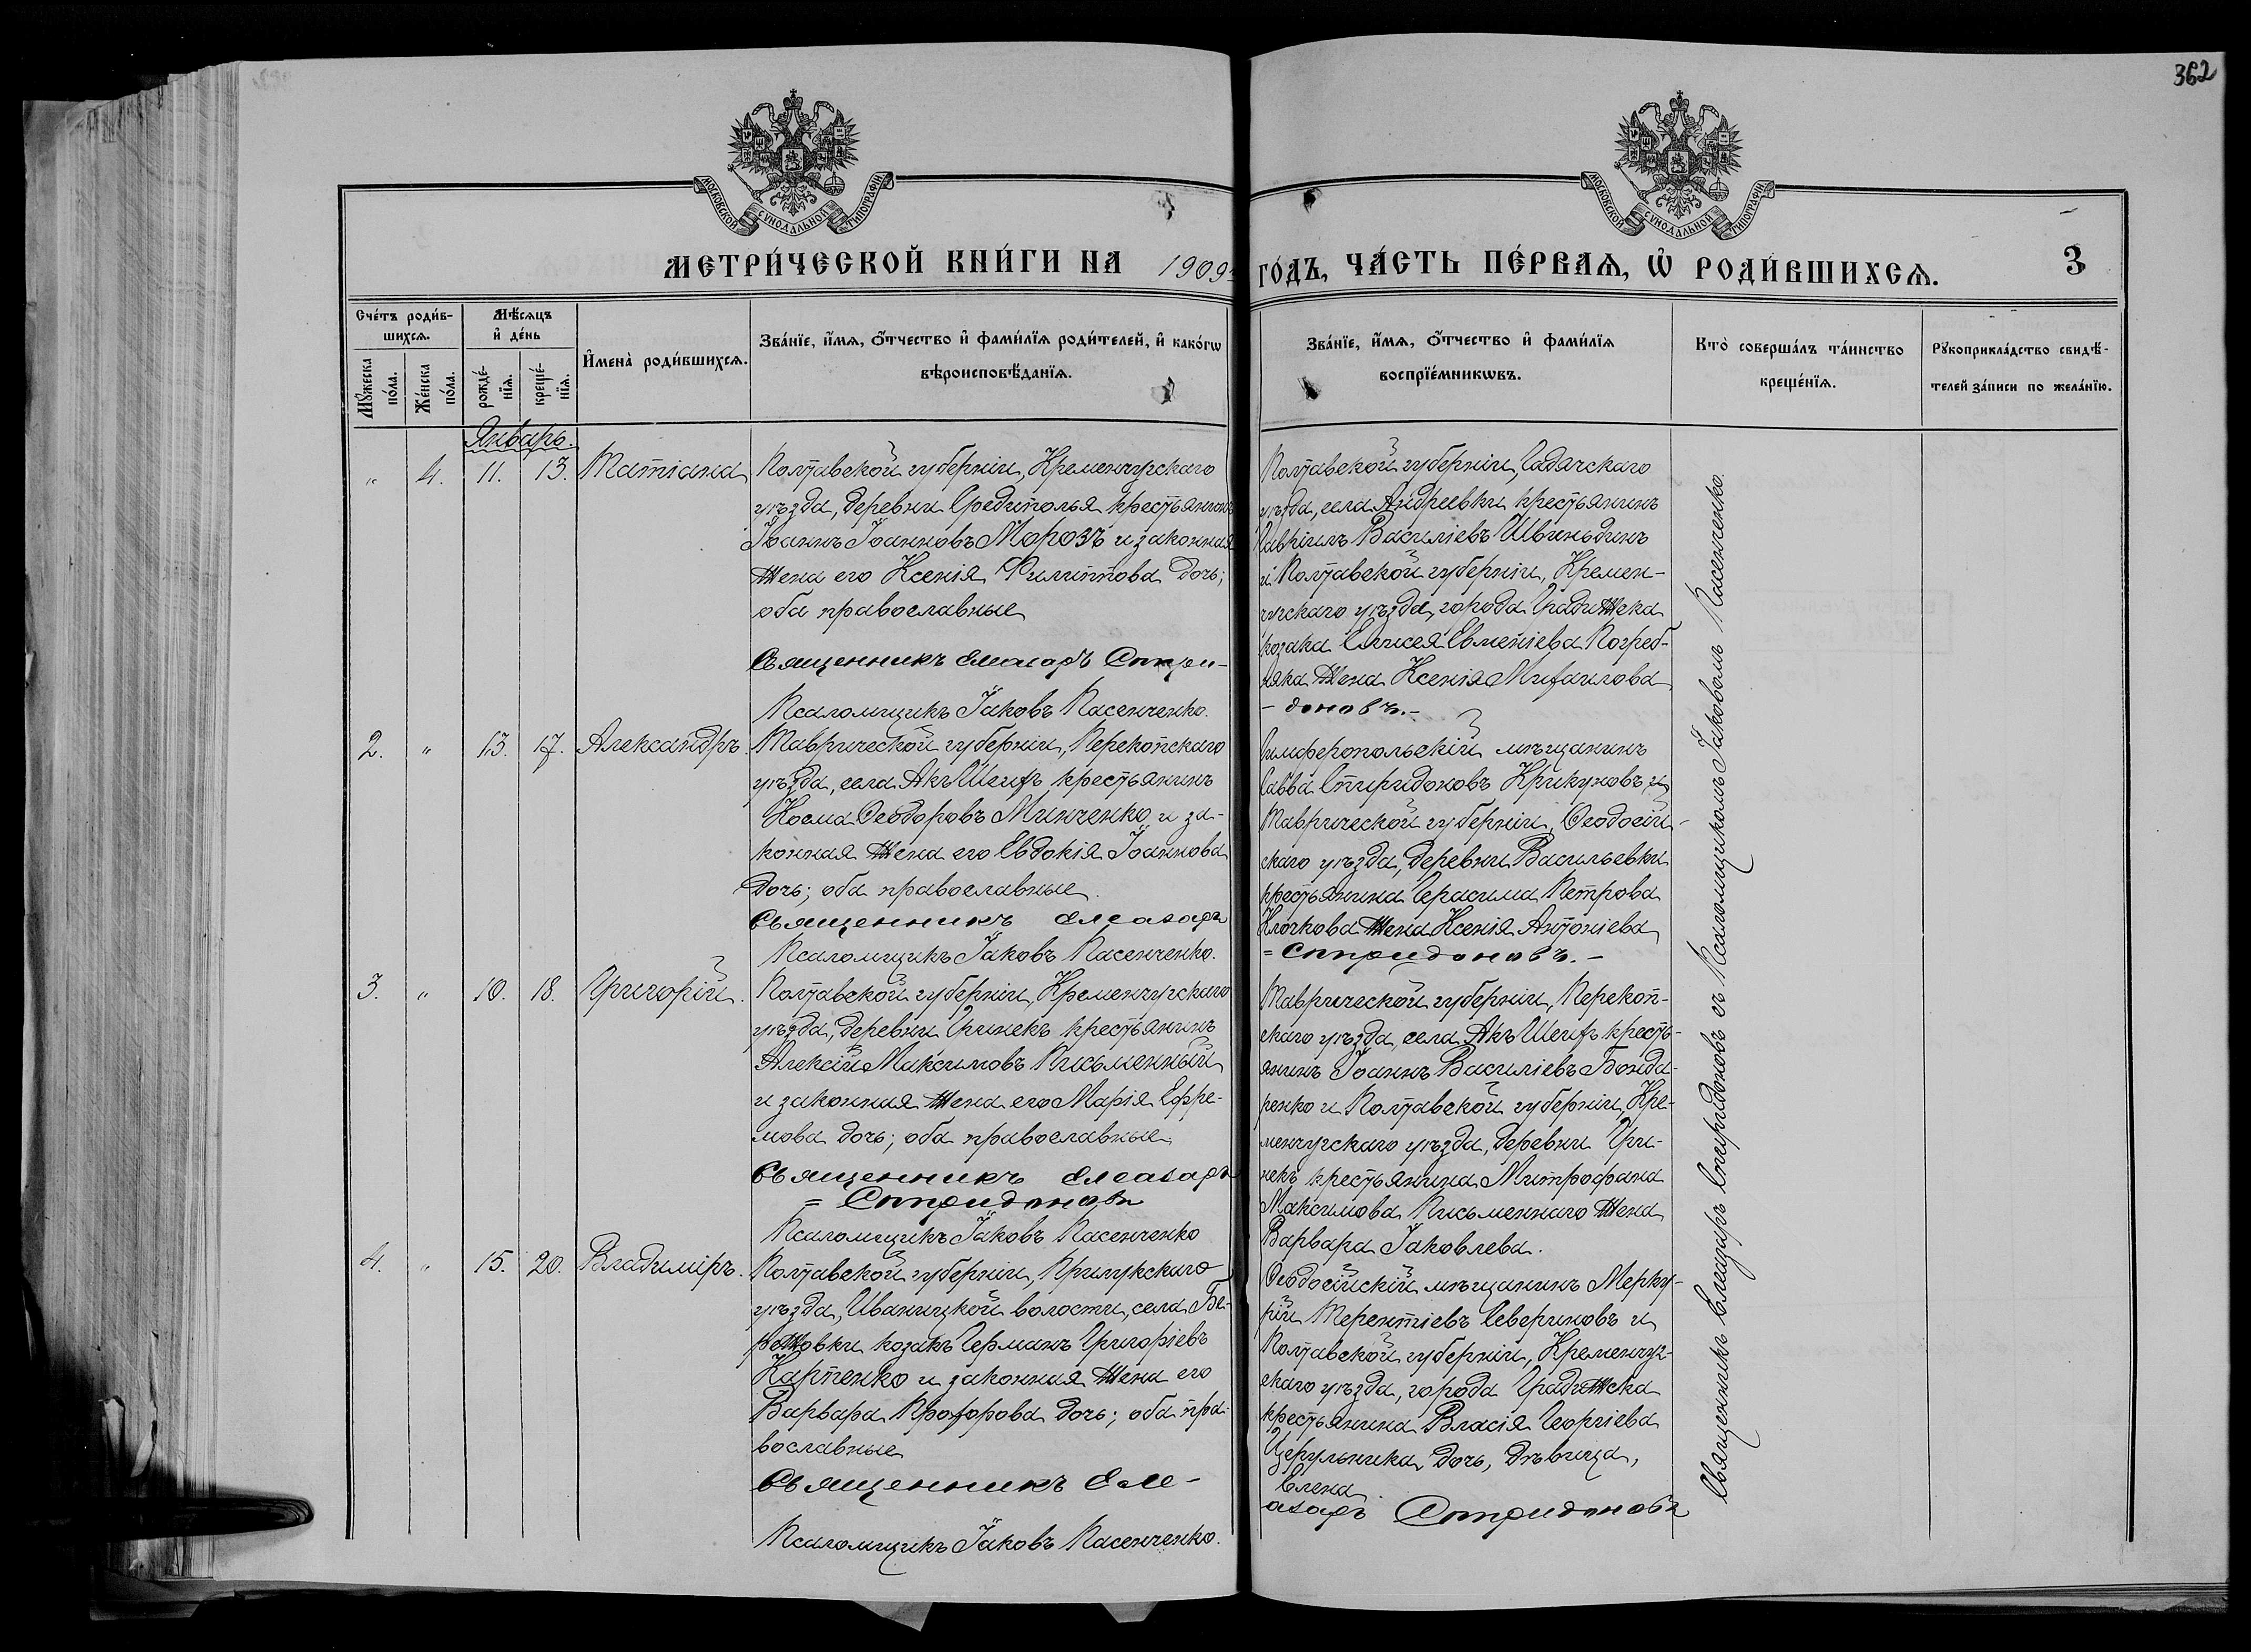 362
МОСКОВСКОЙ СѴНОДАЛЬНОЙ ТИПОГРАФІИ
МОСКОВСКОЙ СѴНОДАЛЬНОЙ ТИПОГРАФІИ
МЕТРИ́ЧЕСКОЙ КНИ́ГИ НА 1909
ГО́ДЪ, ЧА́СТЬ ПЕ́РВАѦ, Ѡ҆ РОДИ́ВШИХСѦ.
3
Сче́тъ роди́в-
шихсѧ.
Мꙋ́жеска
по́ла.
Же́нска
по́ла.
Мѣ́сѧцъ
и҆ де́нь
рожде́-
нїѧ.
креще́-
нїѧ.
И҆мена̀ роди́вшихсѧ.
Зва́нїе, и҆́мѧ, ѻ҆́тчество и҆ фами́лїѧ роди́телей, и҆ како́гѡ
вѣроисповѣ́данїѧ.
Зва́нїе, и҆́мѧ, ѻ҆́тчество и҆ фами́лїѧ
воспрїе́мникѡвъ.
Кто̀ соверша́лъ та́инство
креще́нїѧ.
Рꙋкоприкла́дство свидѣ́-
телей за́писи по жела́нїю.
Январь.
" 4. 11. 13. Татіана
Полтавской губерніи, Кременчугскаго
уѣзда, деревни Средиполья крестьянинъ
Іоаннъ Іоанновъ Морозъ и законная
жена его Ксенія Филиппова дочь;
оба православные
Священникъ Елеазаръ Спири-
Псаломщикъ Іаковъ Пасенченко.
Полтавской губерніи, Гадячскаго
уѣзда, села Андреевки крестьянинъ
Василіевъ Швиньдинъ
и Полтавской губерніи, Кремен-
чугскаго уѣзда, города Градижска
козака Елисея Евменіева Погреб-
няка жена Ксенія Михаилова
- доновъ.-
2. " 13. 17. Александръ.
Таврической губерніи, Перекопскаго
уѣзда, села Акъ Шеихъ крестьянинъ
Косма Ѳеодоровъ Минченко и за-
конная жена его Евдокія Іоаннова
дочь; оба православные.
Священникъ Елеазаръ
Псаломщикъ Іаковъ Пасенченко.
Симферопольскій мѣщанинъ
Савва Спиридоновъ Крикуновъ и
Таврической губерніи, Ѳеодосій-
скаго уѣзда, деревни Васильевки
крестьянина Герасима Петрова
Клочкова жена Ксенія Антоніева
= Спиридоновъ.-
3. " 10. 18. Григорій.
Полтавской губерніи, Кременчугскаго
уѣзда, деревни Гринекъ крестьянинъ
Алексій Максимовъ Письменный
и законная жена его Марія Ефре-
мова дочь; оба православные
Священникъ Елеазаръ
= Спиридоновъ
Псаломщикъ Іаковъ Пасенченко
Таврической губерніи, Перекоп-
скаго уѣзда, села Акъ Шеихъ кресть-
янинъ Іоаннъ Василіевъ Бонда-
ренко и Полтавской губерніи, Кре-
менчугскаго уѣзда, деревни Гри-
некъ крестьянина Митрофана
Максимова Письменнаго жена
Варвара Іаковлева.
4. " 15. 20. Владиміръ.
Полтавской губерніи, Прилукскаго
уѣзда, Иваницкой волости, села Бе-
режовки козакъ Германъ Григоріевъ
Карпенко и законная жена его
Варвара Прохорова дочь; оба пра-
вославные
Священникъ Еле-
Псаломщикъ Іаковъ Пасенченко.
Ѳеодосійскій мѣщанинъ Мерку-
рій Терентіевъ Севериновъ и
Полтавской губерніи, Кременчуг-
скаго уѣзда, города Градижска
крестьянина Власія Георгіева
Церульника дочь, дѣвица,
Елена.
азаръ Спиридоновъ
Священникъ Елеазаръ Спиридоновъ съ Псаломщикомъ Іаковомъ Пасенченко.